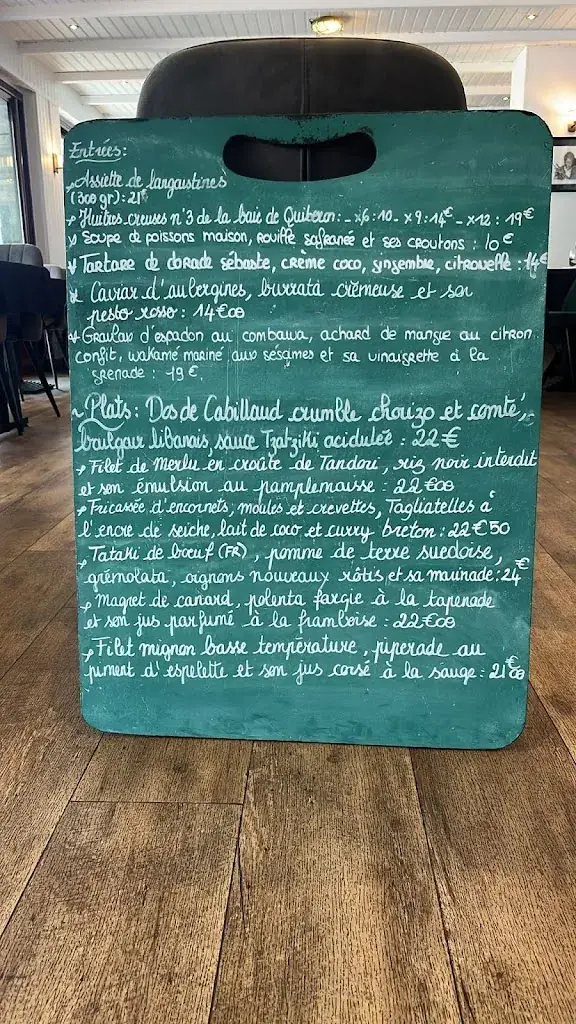 Entrées:
Assiette de langoustines
(300 gr): 21€
Huîtres creuses n°3 de la baie de Quiberon: - x6:10 - x9:14€ - x12: 19€
Soupe de poissons maison, rouille safranée et ses croutons: 10€
Tartare de dorade sébaste, crème coco, gingembre, citronnelle: 14€
Caviar d'aubergines, burrata crèmeuse et son
pesto rosso: 14€00
Gravlax d'espadon au combawa, achard de mangue au citron
confit, wakamé mariné aux sésames et sa vinaigrette à la
grenade: 19€
Plats: Dos de Cabillaud crumble chorizo et comté,
boulgour libanais, sauce Tzatziki acidulée: 22€
Filet de Merlu en croûte de Tandori, riz noir interdit
et son émulsion au pamplemousse: 22€00
Fricassée d'encornets, moules et crevettes, Tagliatelles à
l'encre de seiche, lait de coco et curry breton: 22€50
Tataki de boeuf (FR), pomme de terre suedoise,
grémolata, oignons nouveaux rôtis et sa marinade: 24€
Magret de canard, polenta fargie à la tapenade
et son jus parfumé à la framboise: 22€00
Filet mignon basse température, piperade au
piment d'espelette et son jus corsé à la sauge: 21€00